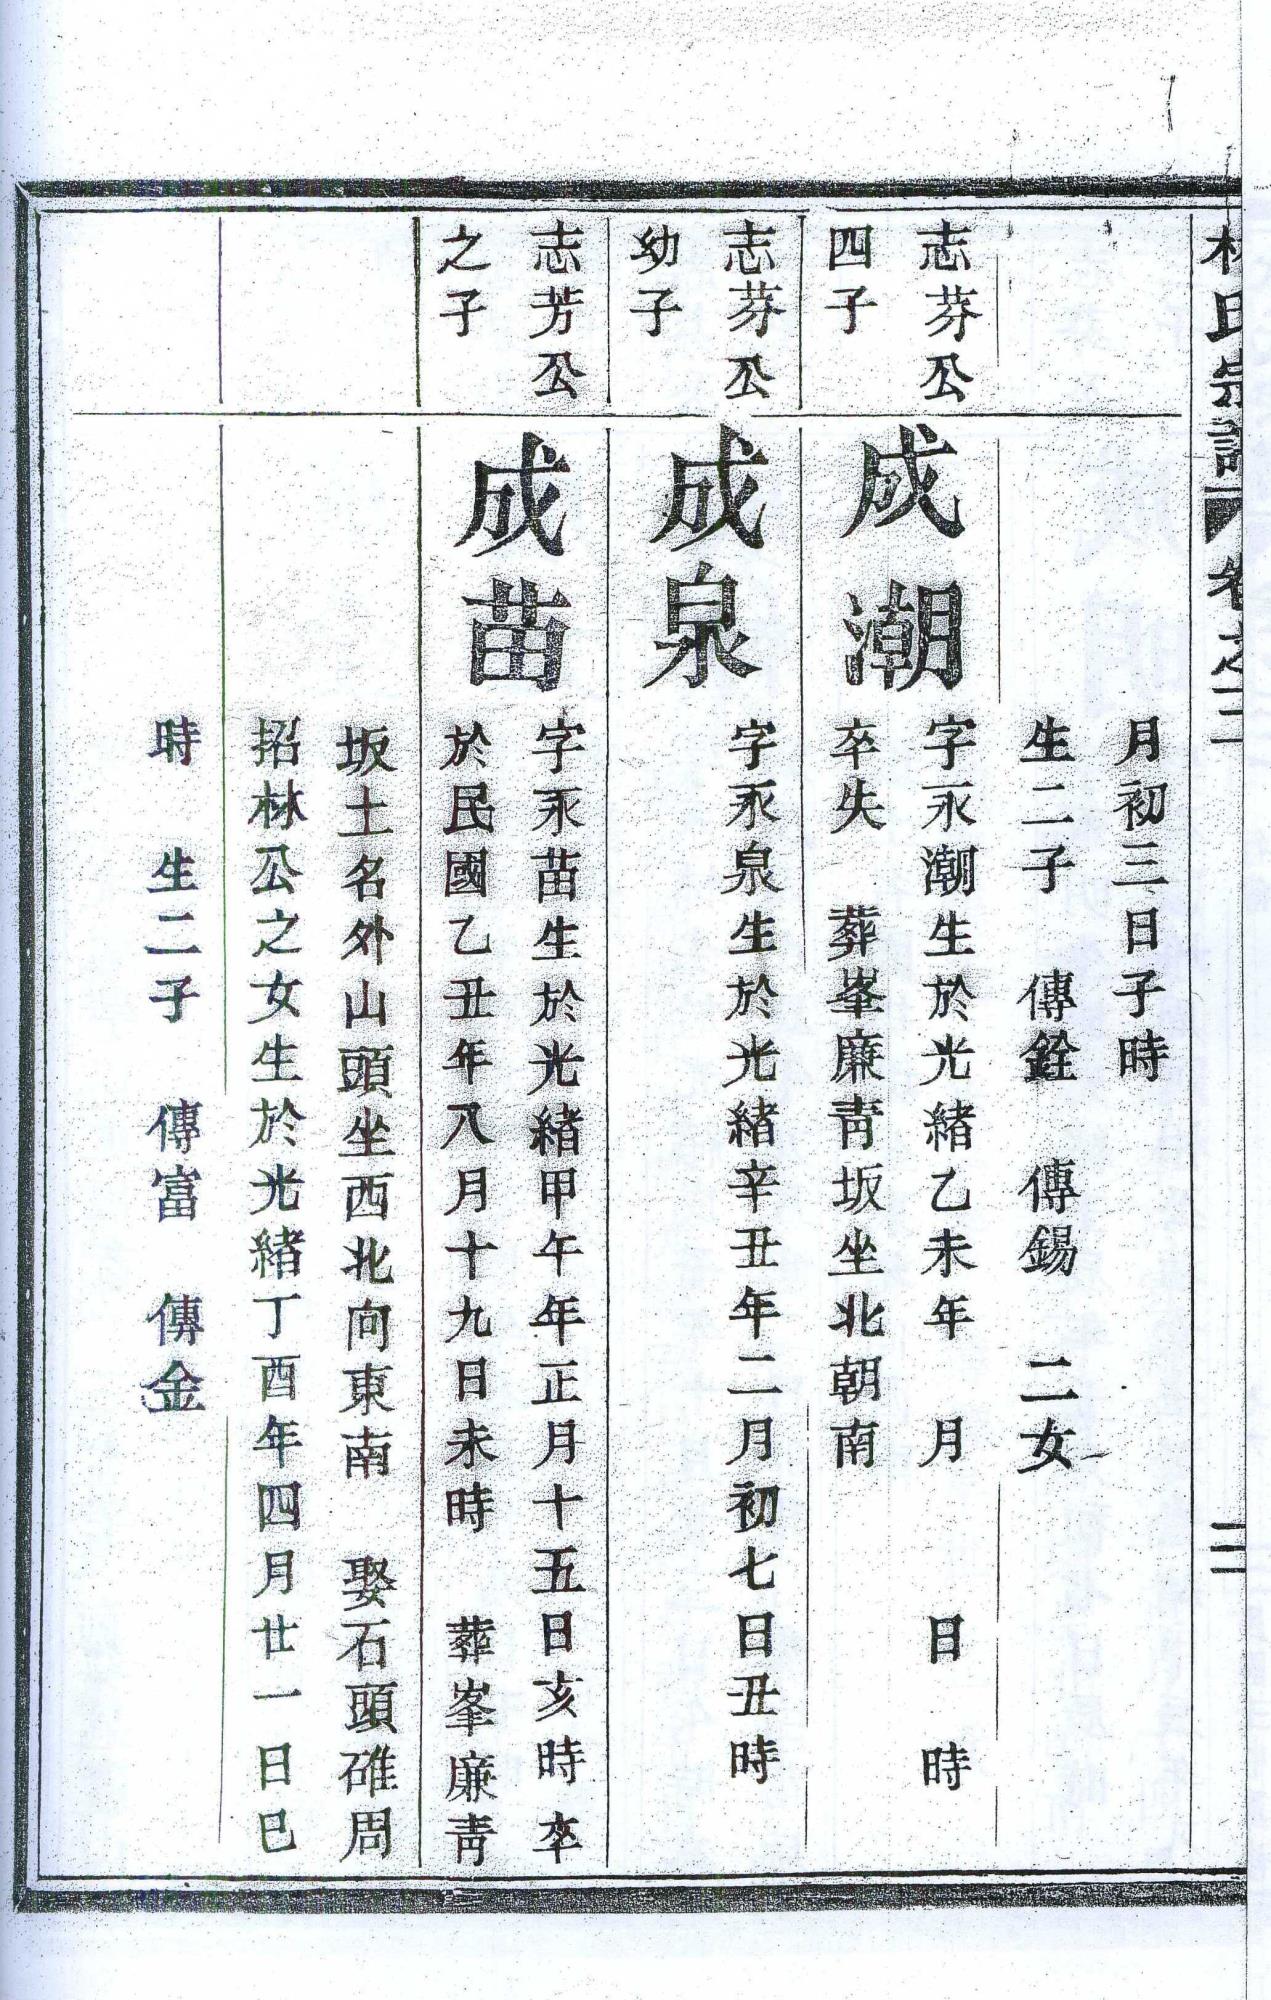 氏宗譜 卷之二
月初三日子時
生二子 傳銓 傳錫 二女
志芬公
四子
成潮
字永潮生於光緒乙未年 月 日 時
卒失 葬峯廉青坂坐北朝南
志芬公
幼子
成泉
字永泉生於光緒辛丑年二月初七日丑時
志芳公
之子
成苗
字永苗生於光緒甲午年正月十五日亥時卒
於民國乙丑年八月十九日未時 葬峯廉青
坂土名外山頭坐西北向東南 娶石頭碓周
招林公之女生於光緒丁酉年四月廿一日巳
時 生二子 傳富 傳金